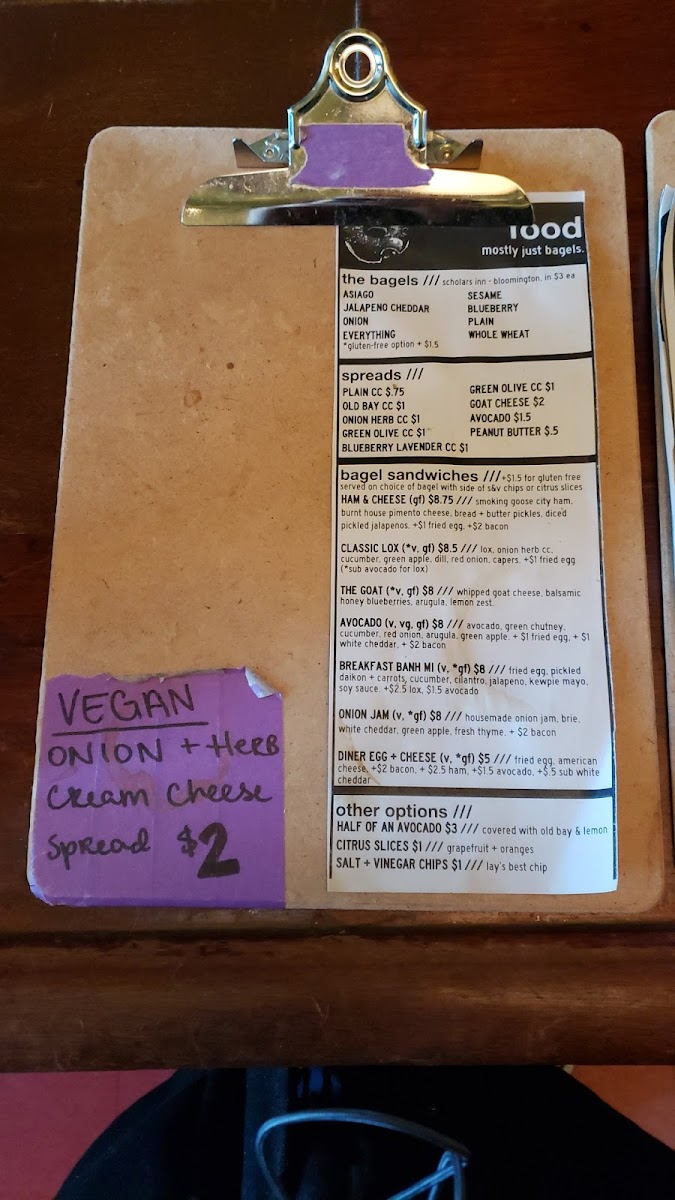 food
mostly just bagels.
the bagels /// scholars inn - bloomington, in $3 ea
ASIAGO
JALAPENO CHEDDAR
ONION
EVERYTHING
*gluten-free option + $1.5
SESAME
BLUEBERRY
PLAIN
WHOLE WHEAT
spreads ///
PLAIN CC $.75
OLD BAY CC $1
ONION HERB CC $1
GREEN OLIVE CC $1
BLUEBERRY LAVENDER CC $1
GREEN OLIVE CC $1
GOAT CHEESE $2
AVOCADO $1.5
PEANUT BUTTER $.5
bagel sandwiches /// +$1.5 for gluten free
served on choice of bagel with side of s&v chips or citrus slices
HAM & CHEESE (gf) $8.75 /// smoking goose city ham,
burnt house pimento cheese, bread + butter pickles, diced
pickled jalapenos. +$1 fried egg, +$2 bacon
CLASSIC LOX (*v, gf) $8.5 /// lox, onion herb cc,
cucumber, green apple, dill, red onion, capers. +$1 fried egg
(*sub avocado for lox)
THE GOAT (*v, gf) $8 /// whipped goat cheese, balsamic
honey blueberries, arugula, lemon zest.
AVOCADO (v, vg, gf) $8 /// avocado, green chutney,
cucumber, red onion, arugula, green apple. + $1 fried egg, + $1
white cheddar, + $2 bacon
BREAKFAST BANH MI (v, *gf) $8 /// fried egg, pickled
daikon + carrots, cucumber, cilantro, jalapeno, kewpie mayo,
soy sauce. +$2.5 lox, $1.5 avocado
ONION JAM (v, *gf) $8 /// housemade onion jam, brie,
white cheddar, green apple, fresh thyme. + $2 bacon
DINER EGG + CHEESE (v, *gf) $5 /// fried egg, american
cheese, +$2 bacon, + $2.5 ham, +$1.5 avocado, +$.5 sub white
cheddar
other options ///
HALF OF AN AVOCADO $3 /// covered with old bay & lemon
CITRUS SLICES $1 /// grapefruit + oranges
SALT + VINEGAR CHIPS $1 /// lay's best chip
VEGAN
ONION + HERB
Cream Cheese
Spread $2